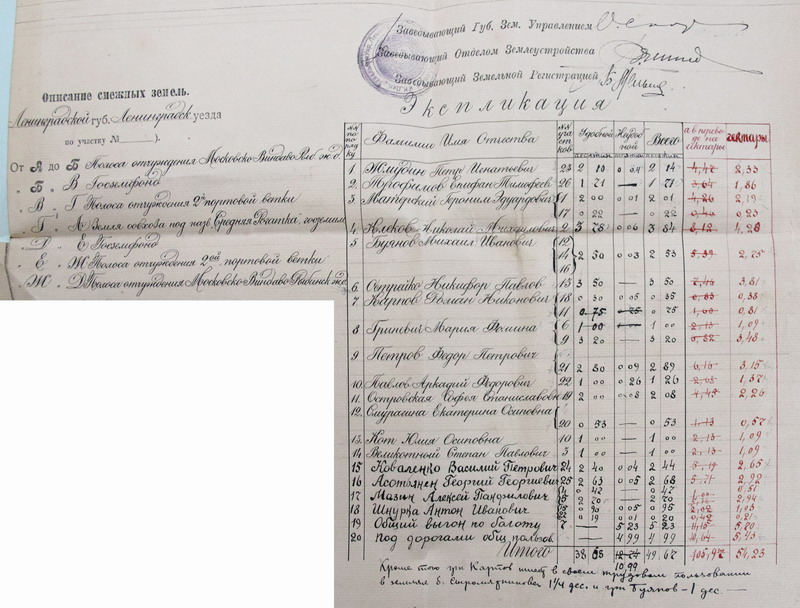 Заведывающий Губ. Зем. Управлением
Заведывающий Отделом Землеустройства
Заведывающий Земельной Регистрацией
Экспликация
Описание смежных земель.
Ленинградской губ. Ленинградск. уезда
по участку №
От А до Б Полоса отчуждения Московско Виндаво Рыб. ж. д.
„ Б „ В Госземфонд
„ В „ Г Полоса отчуждения 2ой портовой ветки
„ Г „ А Земля совхоза под назв. Средняя Рогатка, госземим.
„ Д „ Е Госземфонд
„ Е „ Ж Полоса отчуждения 2ой портовой ветки
„ Ж „ Д Полоса отчуждения Московско Виндаво Рыбинск. ж. д.
№№ по порядку Фамилии Имя Отчества №№ участков Удобной Неудобной Всего а в переводе на гектары гектары
1 Жмудин Петр Игнатович 23 2 10 0 04 2 14 2,33
2 Трофимов Епифан Тимофеев 26 1 71 — 1 71 3,64 1,86
3 Матерский Героним Эдуардович 1 2 00 0 01 2 01 4,26 2,19
17 0 22 — 0 22 0,23
4 Клеков Николай Михайлович 2 3 78 0 06 3 84 8,12 4,20
5 Буянов Михаил Иванович 12
14 2 50 0 03 2 53 5,39 2,75
16
6 Сепрайко Никифор Павлов 13 3 50 — 3 50 7,46 3,81
7 Карпов Роман Никонович 18 0 30 0 05 0 35 0,83 0,38
11 0 75 0 75 0,81
8 Гриневич Мария Фомина 6 1 00 1 00 2,13 1,09
9 3 20 — 3 20 3,48
9 Петров Федор Петрович
21 2 80 0 09 2 89 6,16 3,15
10 Павлов Аркадий Федорович 22 1 00 0 26 1 26 1,37
11 Островская Софья Станиславовн 19 2 00 0 08 2 08 4,43 2,26
12 Смурагина Екатерина Осиповна
20 0 53 — 0 53 1,13 0,57
13 Кот Юлия Осиповна 10 1 00 — 1 00 2,13 1,09
14 Великотный Степан Павлович 3 1 00 — 1 00 2,13 1,09
15 Коваленко Василий Петрович 24 2 40 0 04 2 44 5,19 2,65
16 Асотянен Георгий Георгиевич 25 2 63 0 05 2 68 5,71 2,92
4 0 42 — 0 42 0,51
17 Мазин Алексей Панфилович 5 2 70 — 2 70 2,94
18 Шнурка Антон Иванович 15 0 90 0 05 0 95 2,02 1,03
0 19 0 01 0 20 0,42 0,21
19 Общий выгон по болоту 7 — 5 23 5 23 11,15 5,70
20 под дорогами общ. пользов. 4 99 4 99 10,64 5,43
Итого 38 68 10,99 49,67 105,97 54,23
Кроме того гр. Карпов имеет в своем трудовом пользовании
в землях б. 1¼ дес. и гр. Буянов — 1 дес. —